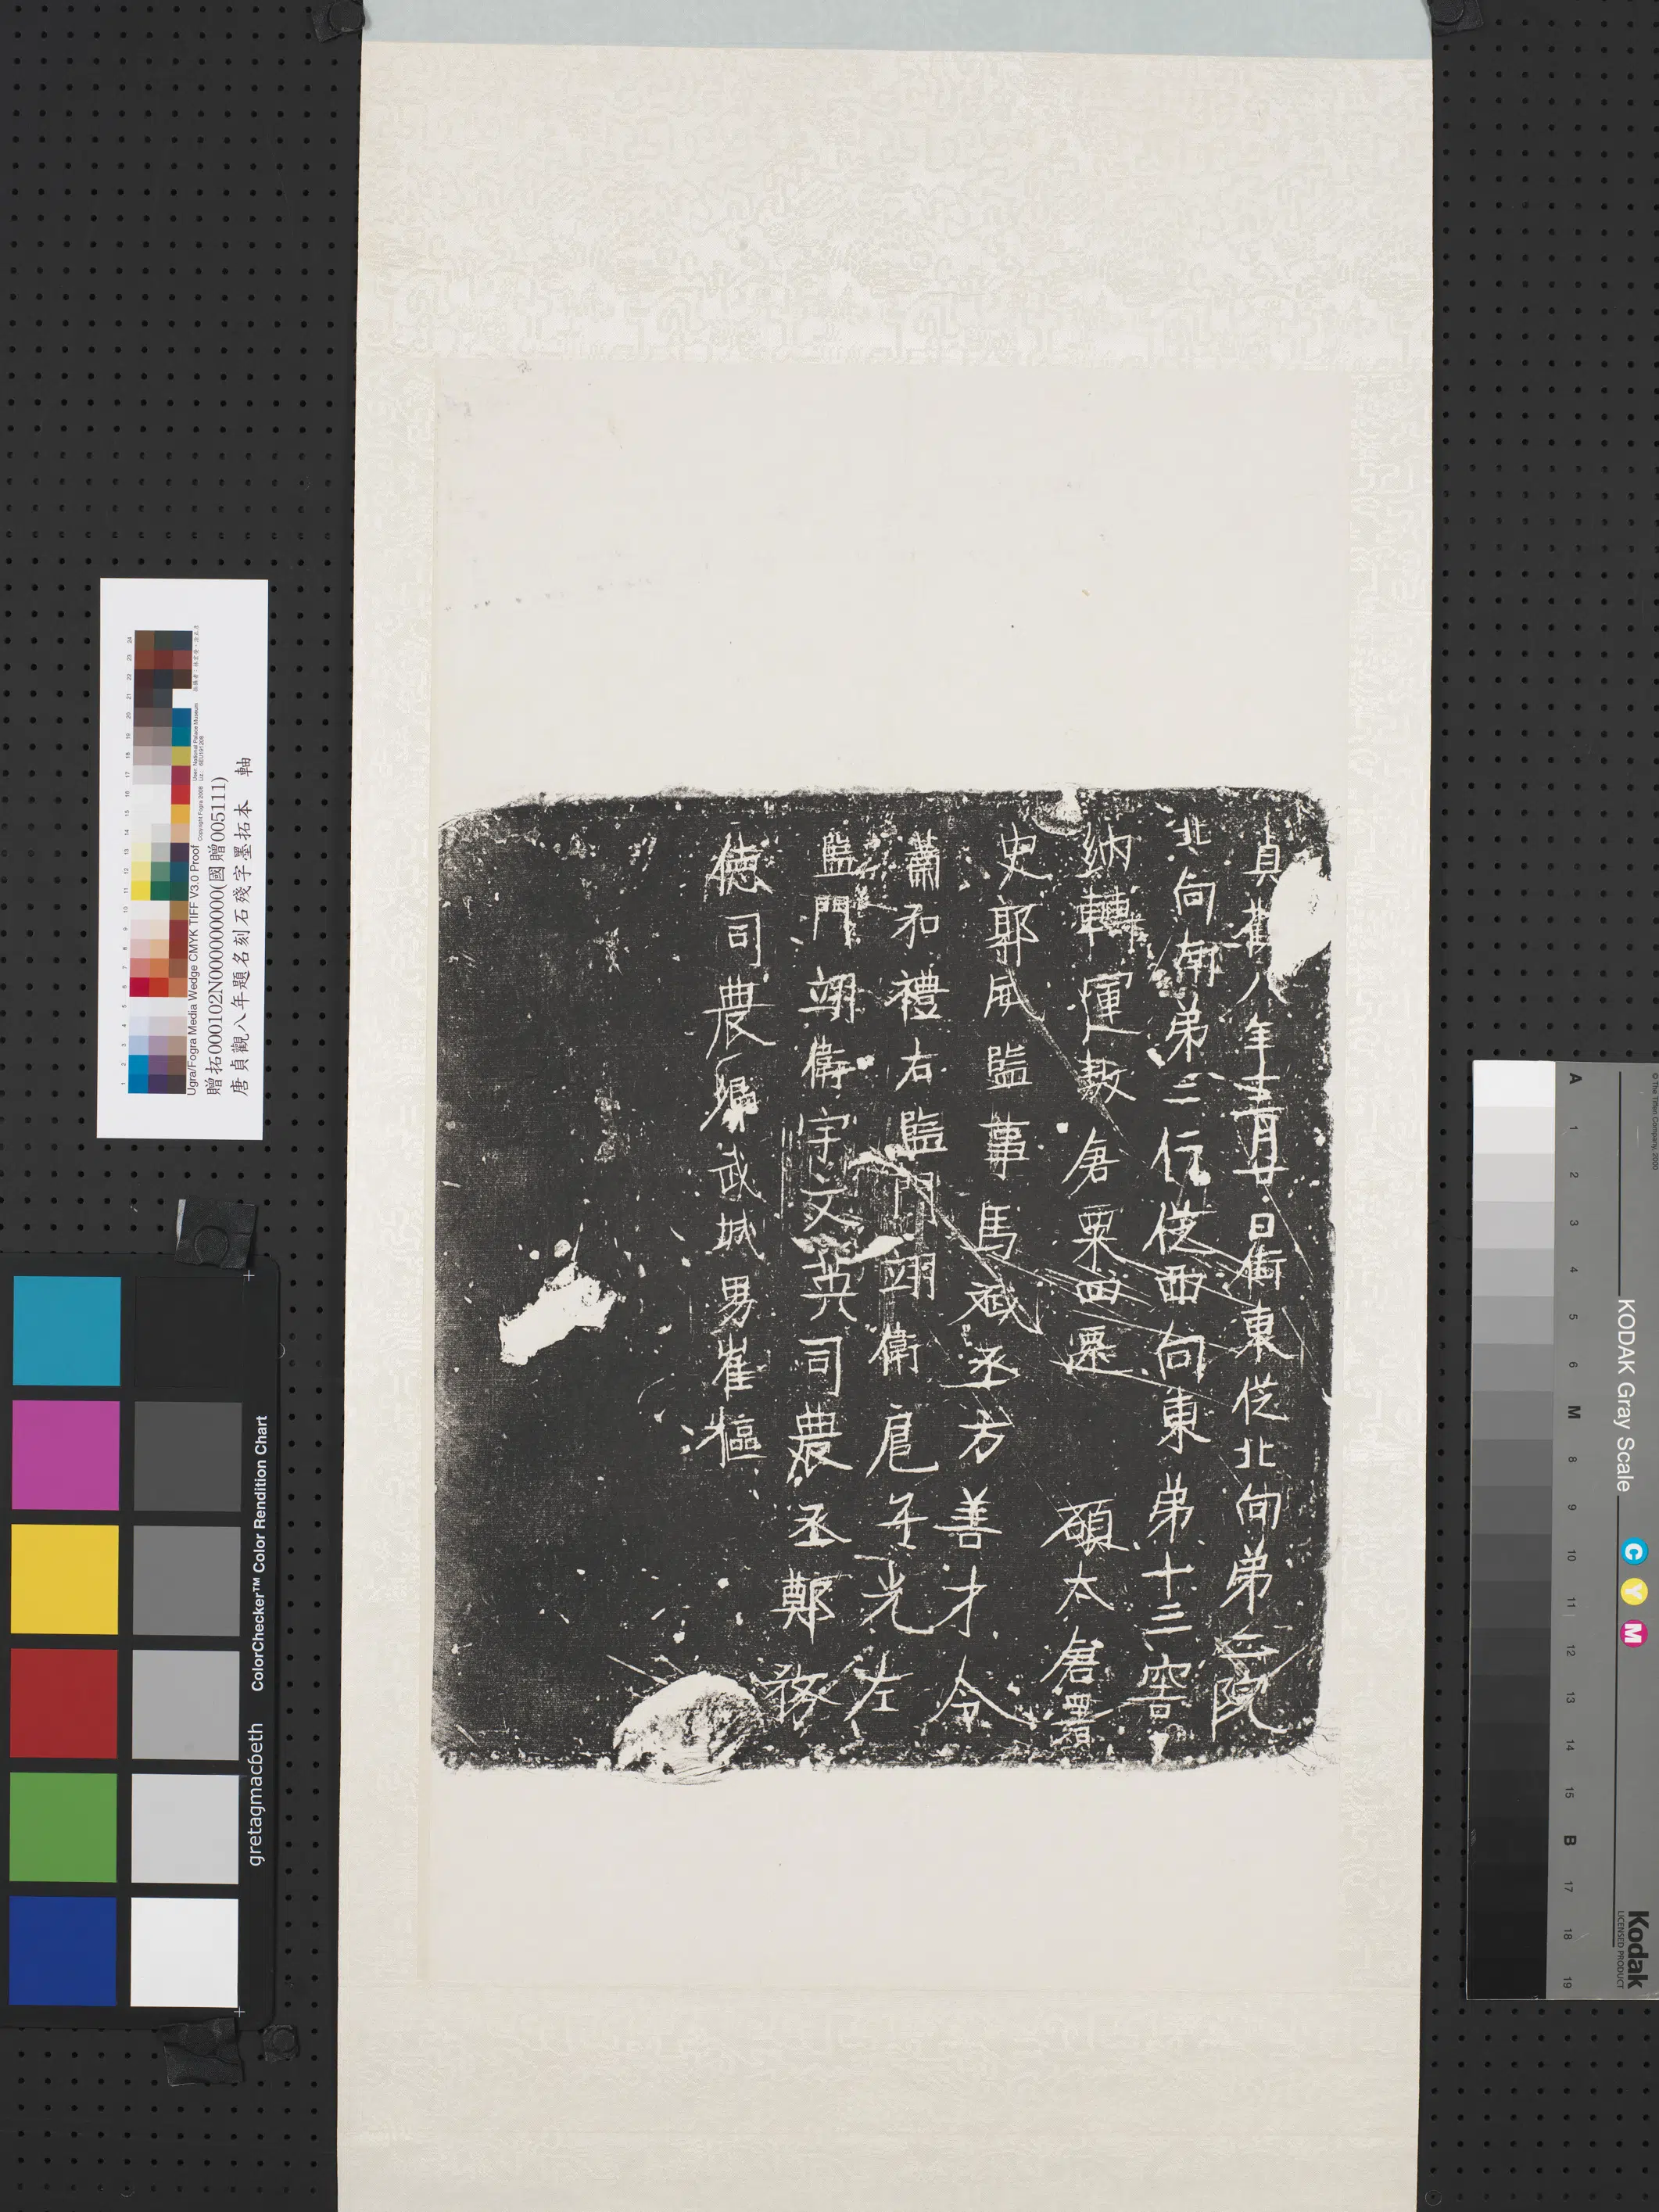 貞觀八年十二月廿日街東從北向弟二院
北向廓弟二行從西向東弟十三窖
納轉運敖倉粟四遷 碩太倉署
史耶威監事馬 丞方善才令
蕭和禮右監門翊衛扈年光左
監門翊衛宇文英司農丞鄭
德司農 武城男崔樞
Ugra/Fogra Media Wedge CMYK TIFF V3.0 Proof
Copyright Fogra 2008
User: National Palace Museum
贈拓000102N000000000(國贈005111)
唐貞觀八年題名刻石殘字墨拓本 軸
ColorChecker™ Color Rendition Chart
gretagmacbeth
KODAK Gray Scale
C Y M
Kodak
LICENSED PRODUCT
A 1 2 3 4 5 6 M 8 9 10 11 12 13 14 15 B 17 18 19
© The Tiffen Company, 2000